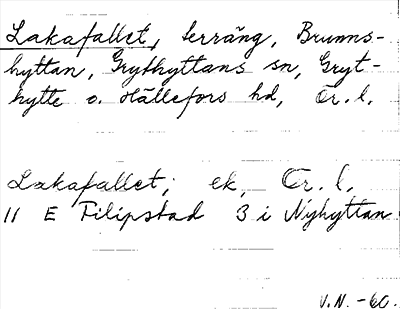 Lakafallet, terräng, Brunns-
hyttan, Grythyttans sn, Gryt-
hytte o. Hällefors hd, Ör. l.
Lakafallet, ek, Ör. l.
11 E Filipstad 3 i Nyhyttan
V.N. -60.